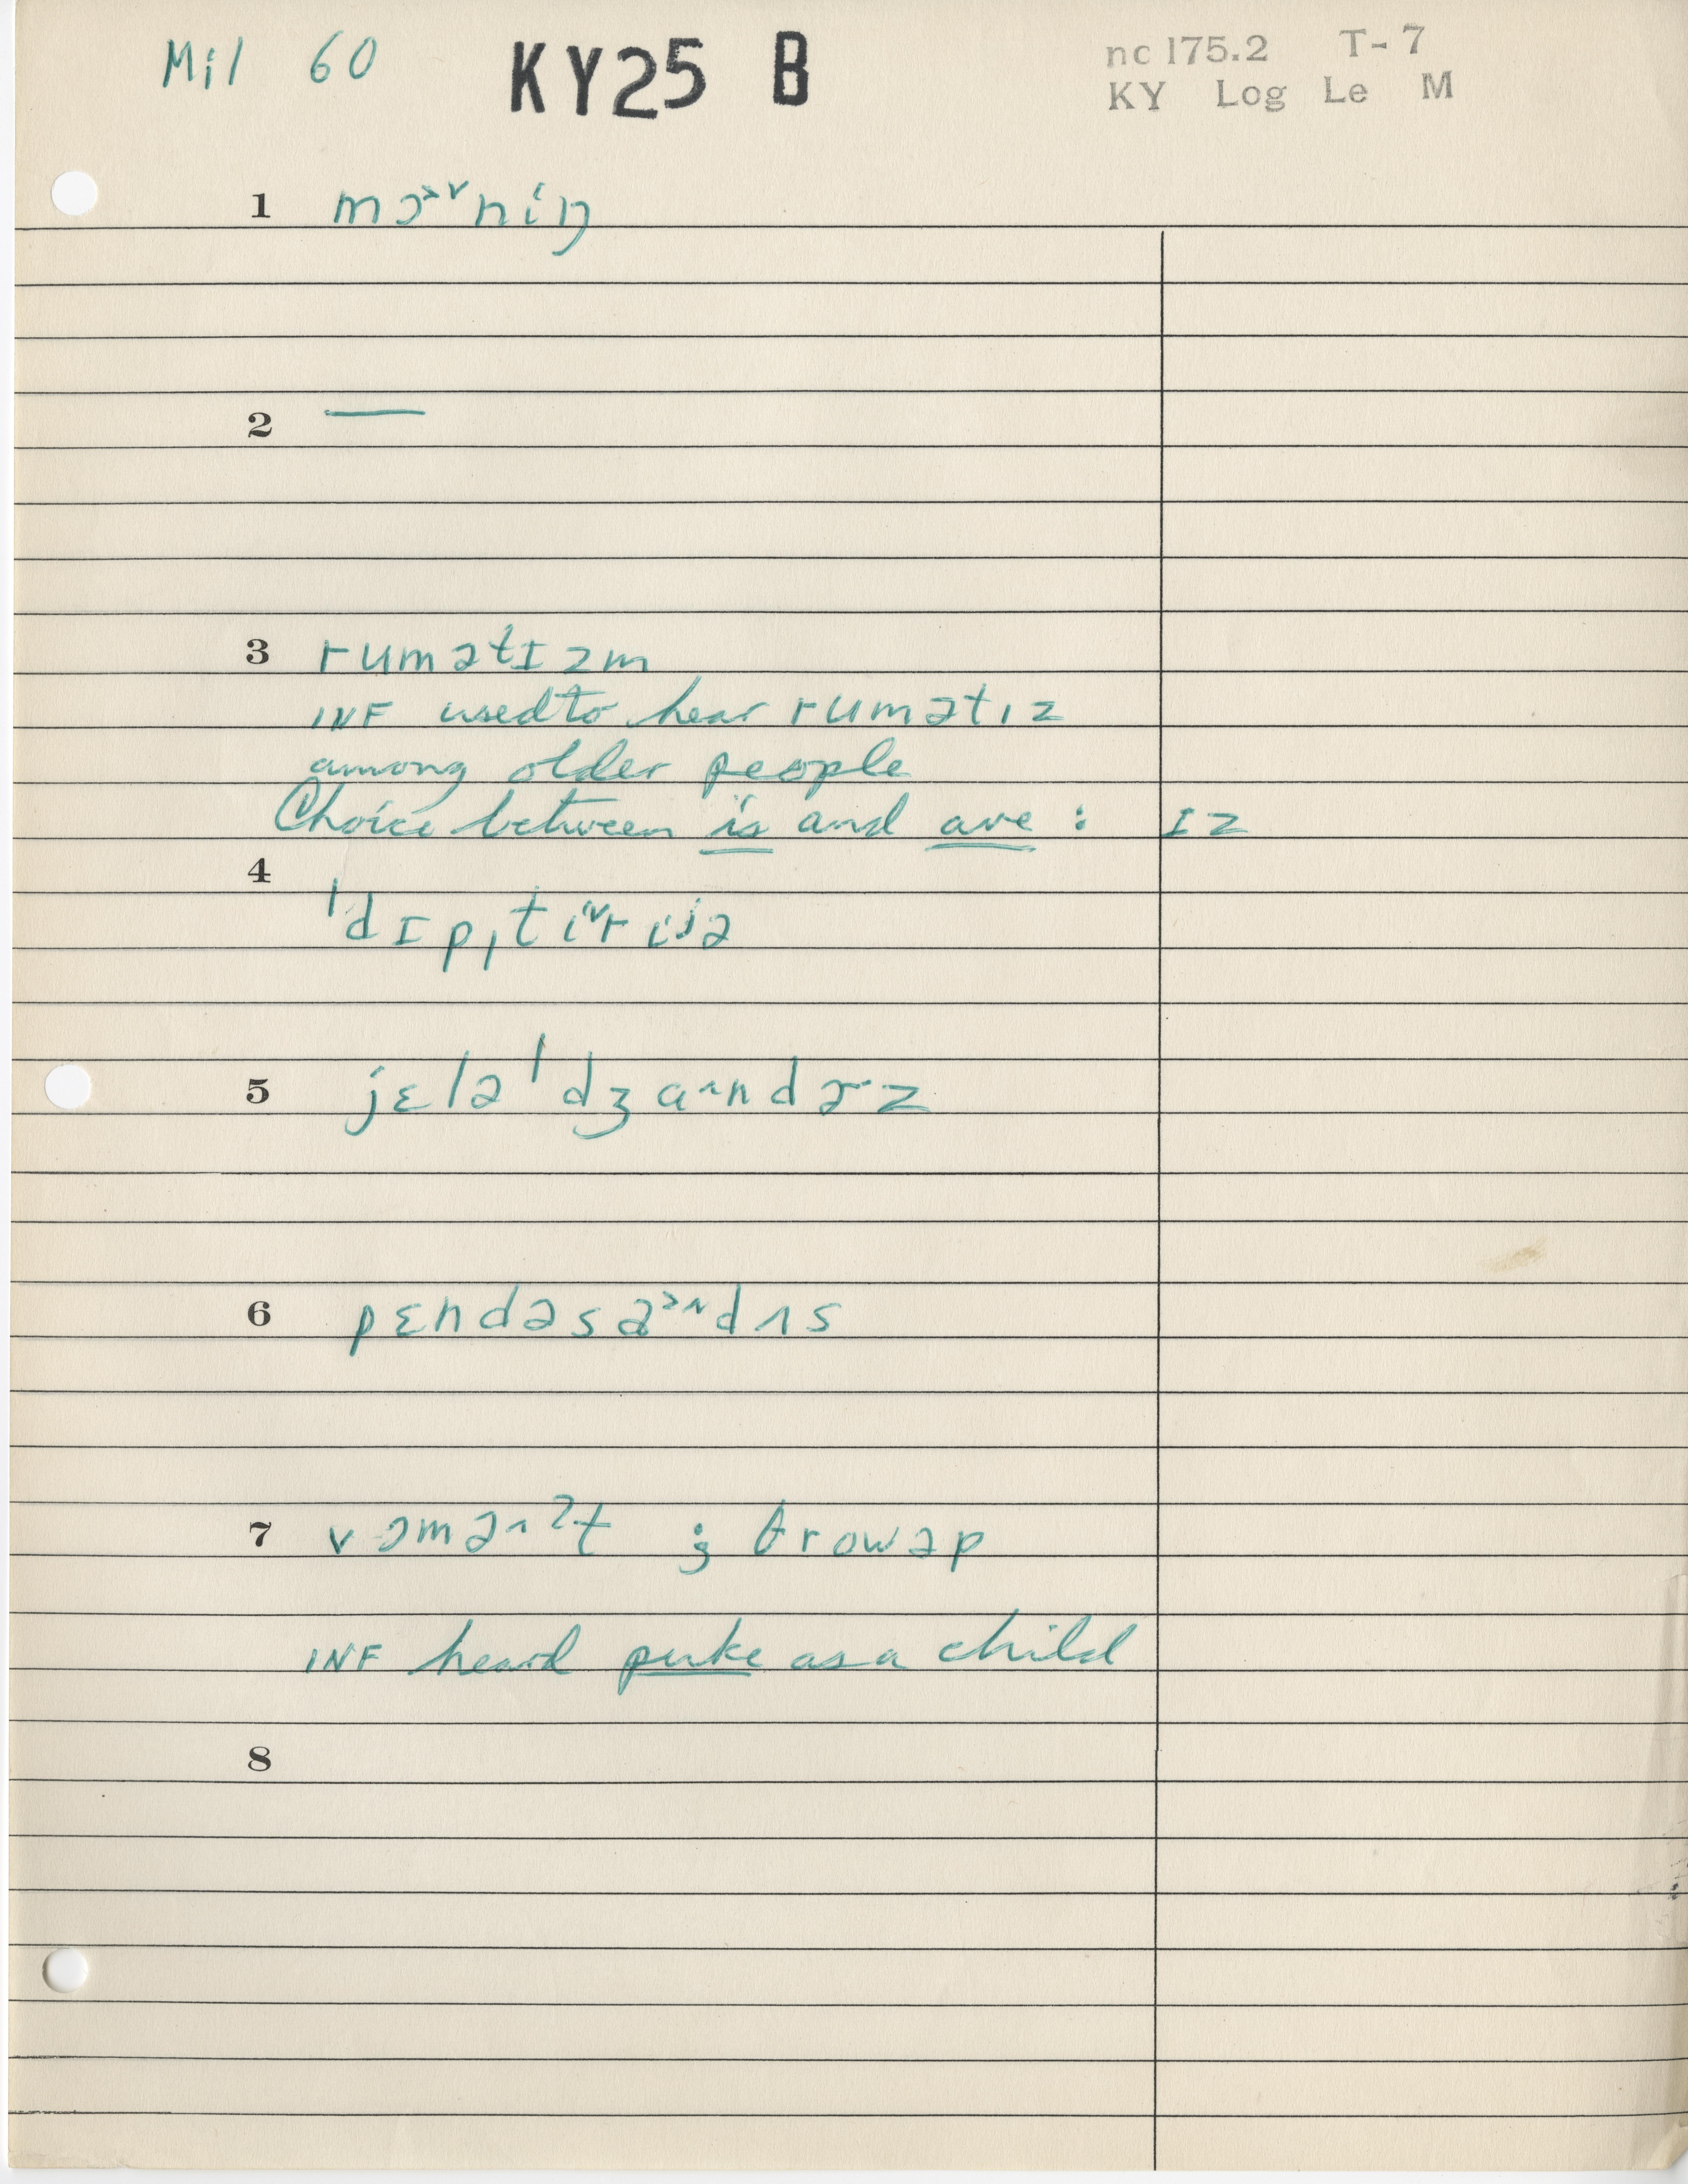 Mil 60 KY25 B nc 175.2 T-7
KY Log Le M
1 mɔ˃˅niŋ
2 —
3 rumətɪzm
INF used to hear rumətız
among older people
Choice between is and are : ɪz
4
ˈdɪpˌti˄˅riʲə
5 jɛləˈdʒɑ˄ndɚz
6 pɛndəsa˃˄dʌs
7 vɔməˆˀt ; θrowəp
INF heard puke as a child
8